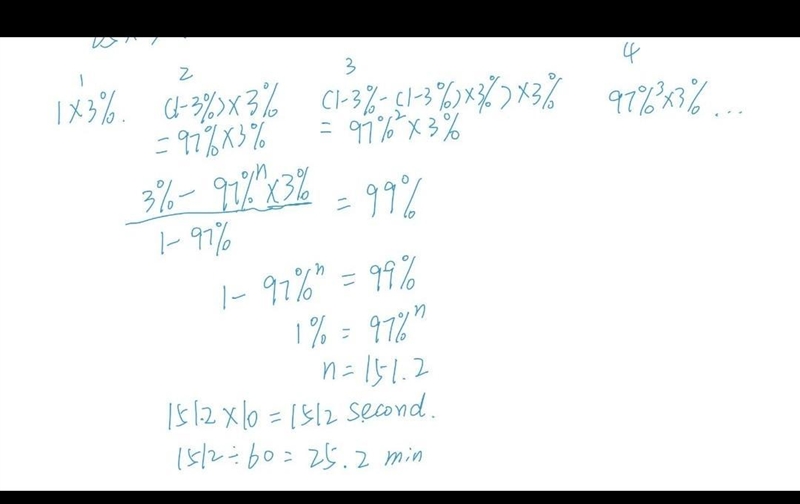 1 2 3 4
1×3%. (1-3%)×3% (1-3%-(1-3%)×3%)×3% 97%³×3% ...
=97%×3% = 97%²×3%
3%- 97%ⁿ×3%
1-97%
= 99%
1- 97%ⁿ = 99%
1% = 97%ⁿ
n=151.2
151.2×10=1512 second.
1512÷60=25.2 min